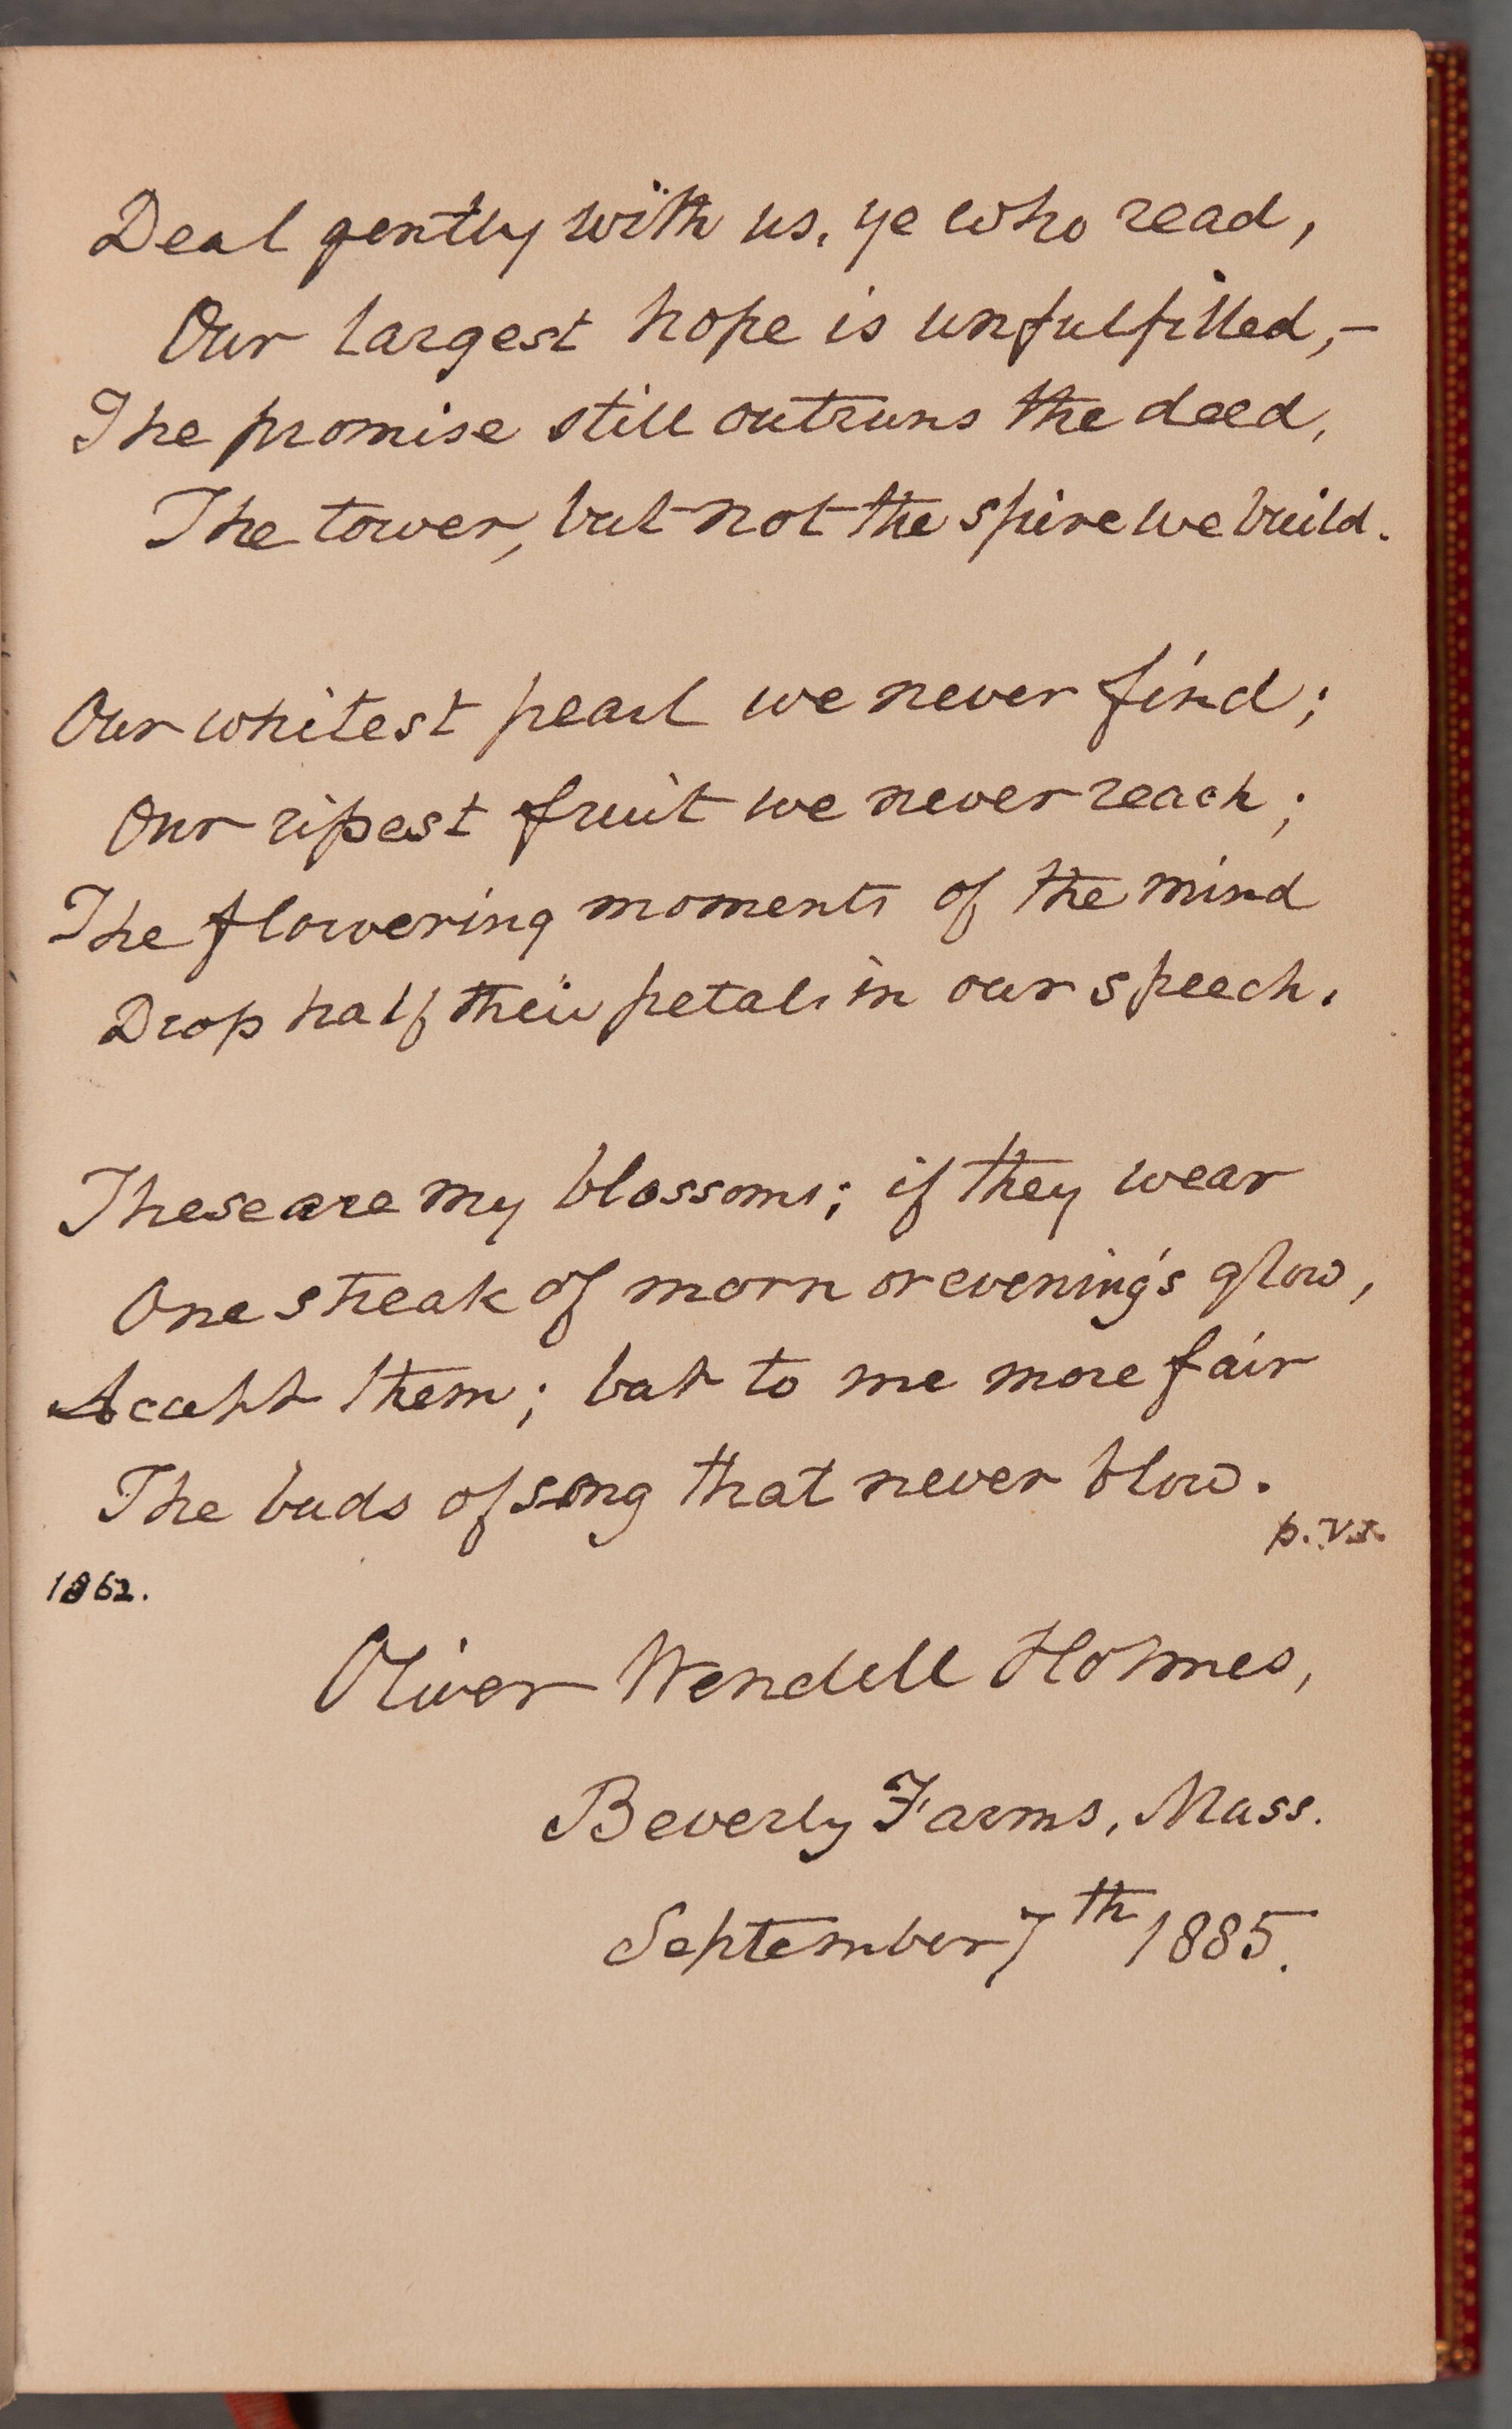 Deal gently with us, ye who read,
Our largest hope is unfulfilled,—
The promise still outruns the deed,
The tower, but not the spire we build.
Our whitest pearl we never find;
Our ripest fruit we never reach;
The flowering moments of the mind
Drop half their petals in our speech.
These are my blossoms; if they wear
One streak of morn or evening's glow,
Accept them; but to me more fair
The buds of song that never blow.
1862.
Oliver Wendell Holmes,
Beverly Farms, Mass.
September 7th 1885.